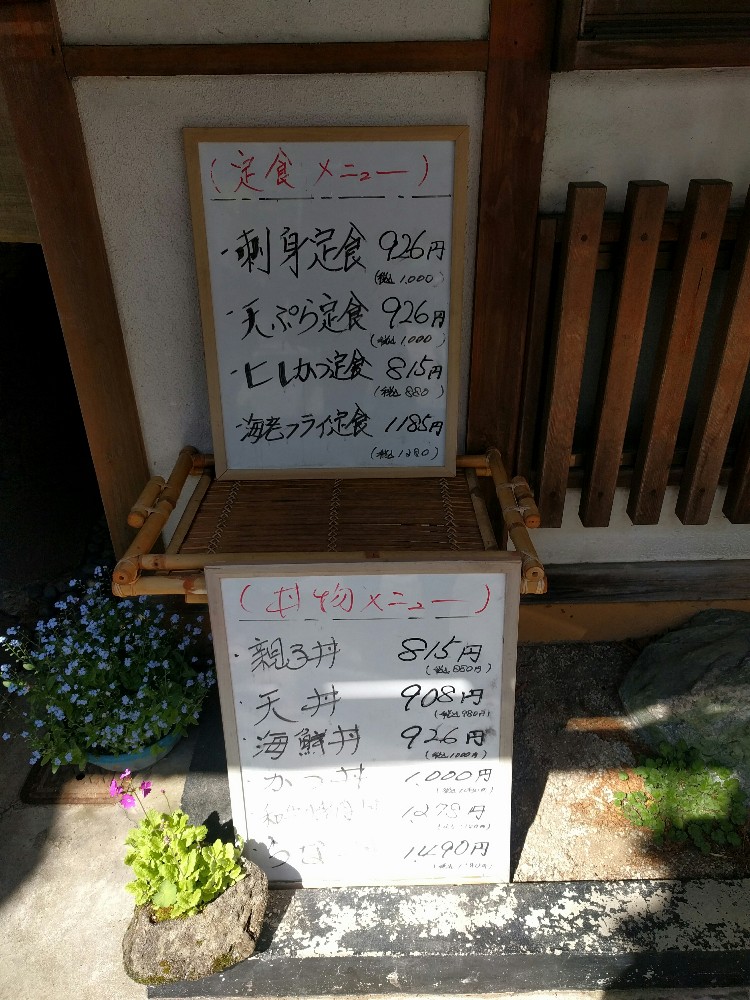 (定食メニュー)
・刺身定食 926円
(税込 1,000)
・天ぷら定食 926円
(税込 1,000)
・ヒレかつ定食 815円
(税込 880)
・海老フライ定食 1185円
(税込 1280)
(丼物メニュー)
・親子丼 815円
(税込 880円)
・天丼 908円
(税込 980円)
・海鮮丼 926円
(税込 1000円)
・かつ丼 1.000円
1.278円
・うな 1.490円